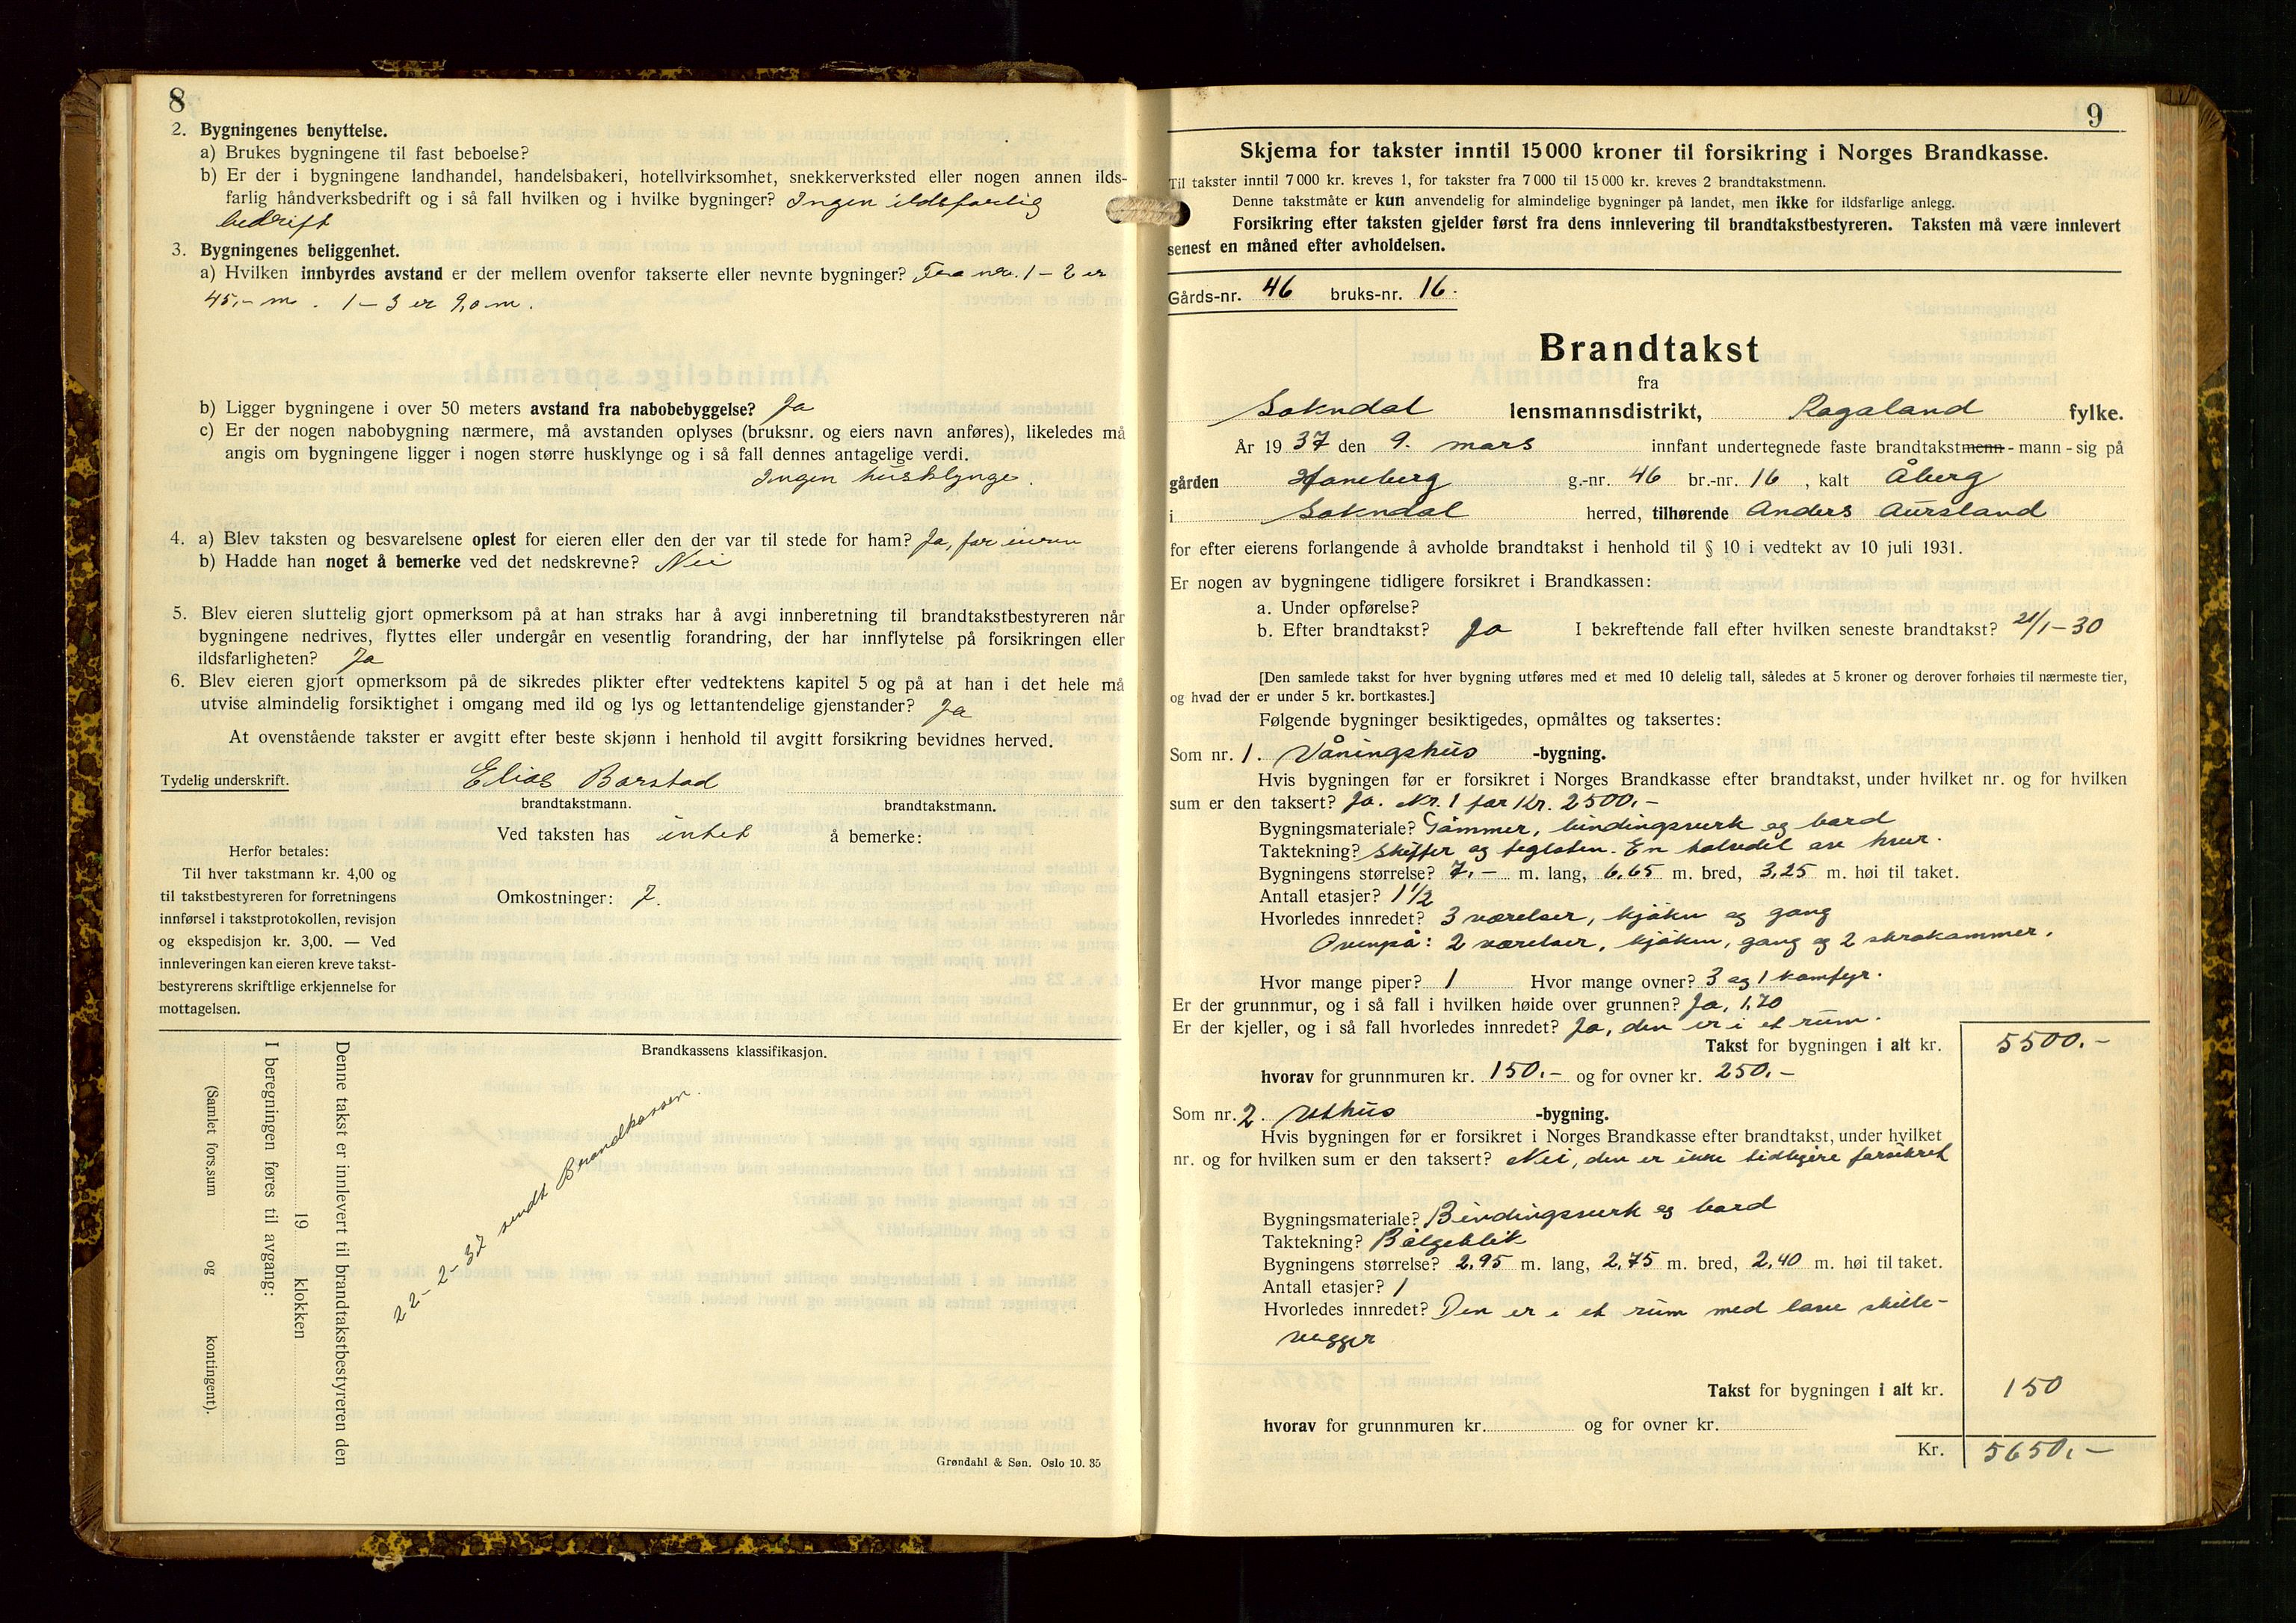 8
2. Bygningenes benyttelse.
a) Brukes bygningene til fast beboelse?
b) Er der i bygningene landhandel, handelsbakeri, hotellvirksomhet, snekkerverksted eller nogen annen ilds-
farlig håndverksbedrift og i så fall hvilken og i hvilke bygninger? Ingen ildsfarlig
bedrift
3. Bygningenes beliggenhet.
a) Hvilken innbyrdes avstand er der mellem ovenfor takserte eller nevnte bygninger? Fra nr. 1 - 2 er
45,- m. 1 - 3 er 9,0 m.
b) Ligger bygningene i over 50 meters avstand fra nabobebyggelse? Ja
c) Er der nogen nabobygning nærmere, må avstanden oplyses (bruksnr. og eiers navn anføres), likeledes må
angis om bygningene ligger i nogen større husklynge og i så fall dennes antagelige verdi.
Ingen husklynge.
4. a) Blev taksten og besvarelsene oplest for eieren eller den der var til stede for ham? Ja, for eieren
b) Hadde han noget å bemerke ved det nedskrevne? Nei
5. Blev eieren sluttelig gjort opmerksom på at han straks har å avgi innberetning til brandtakstbestyreren når
bygningene nedrives, flyttes eller undergår en vesentlig forandring, der har innflytelse på forsikringen eller
ildsfarligheten? Ja
6. Blev eieren gjort opmerksom på de sikredes plikter efter vedtektens kapitel 5 og på at han i det hele må
utvise almindelig forsiktighet i omgang med ild og lys og lettantendelige gjenstander? Ja
At ovenstående takster er avgitt efter beste skjønn i henhold til avgitt forsikring bevidnes herved.
Tydelig underskrift. Elias Barstad
brandtakstmann. brandtakstmann.
Ved taksten has intet å bemerke:
Herfor betales:
Til hver takstmann kr. 4,00 og
til takstbestyreren for forretningens
innførsel i takstprotokollen, revisjon
og ekspedisjon kr. 3,00. — Ved
innleveringen kan eieren kreve takst-
bestyrerens skriftlige erkjennelse for
mottagelsen.
Omkostninger: 7.
Brandkassens klassifikasjon.
Denne takst er innlevert til brandtakstbestyreren den
19 klokken
I beregningen føres til avgang:
(Samlet fors.sum og kontingent).
22-2-37 sendt Brandkassen.
Grøndahl & Søn. Oslo 10. 35
9
Skjema for takster inntil 15 000 kroner til forsikring i Norges Brandkasse.
Til takster inntil 7 000 kr. kreves 1, for takster fra 7 000 til 15 000 kr. kreves 2 brandtakstmenn.
Denne takstmåte er kun anvendelig for almindelige bygninger på landet, men ikke for ildsfarlige anlegg.
Forsikring efter taksten gjelder først fra dens innlevering til brandtakstbestyreren. Taksten må være innlevert
senest en måned efter avholdelsen.
Gårds-nr. 46 bruks-nr. 16.
Brandtakst
fra
Sokndal lensmannsdistrikt, Rogaland fylke.
År 1937 den 9. mars innfant undertegnede faste brandtakstmenn - mann - sig på
gården Haneberg g.-nr. 46 br.-nr. 16, kalt Åberg
i Sokndal herred, tilhørende Anders Aursland
for efter eierens forlangende å avholde brandtakst i henhold til § 10 i vedtekt av 10 juli 1931.
Er nogen av bygningene tidligere forsikret i Brandkassen:
a. Under opførelse?
b. Efter brandtakst? Ja I bekreftende fall efter hvilken seneste brandtakst? 21/1-30
[Den samlede takst for hver bygning utføres med et med 10 delelig tall, således at 5 kroner og derover forhøies til nærmeste tier,
og hvad der er under 5 kr. bortkastes.]
Følgende bygninger besiktigedes, opmåltes og taksertes:
Som nr. 1. Våningshus -bygning.
Hvis bygningen før er forsikret i Norges Brandkasse efter brandtakst, under hvilket nr. og for hvilken
sum er den taksert? Ja. Nr. 1 for Kr. 2500,-
Bygningsmateriale? Tømmer, bindingsverk og bord
Taktekning? Skiffer og teglsten. En halvdel av hver.
Bygningens størrelse? 7,- m. lang, 6,65 m. bred, 3,25 m. høi til taket.
Antall etasjer? 1 1/2
Hvorledes innredet? 3 værelser, kjøken og gang
Ovenpå: 2 værelser, kjøken, gang og 2 skrakammer.
Hvor mange piper? 1 Hvor mange ovner? 3 og 1 komfyr.
Er der grunnmur, og i så fall i hvilken høide over grunnen? Ja, 1,70
Er der kjeller, og i så fall hvorledes innredet? Ja, den er i et rum.
Takst for bygningen i alt kr. 5500.-
hvorav for grunnmuren kr. 150.- og for ovner kr. 250.-
Som nr. 2. Uthus -bygning.
Hvis bygningen før er forsikret i Norges Brandkasse efter brandtakst, under hvilket
nr. og for hvilken sum er den taksert? Nei, den er ikke tidligere forsikret
Bygningsmateriale? Bindingsverk og bord
Taktekning? Bølgeblik
Bygningens størrelse? 2,95 m. lang, 2,75 m. bred, 2,40 m. høi til taket.
Antall etasjer? 1
Hvorledes innredet? Den er i et rum med lave skille-
vegger
Takst for bygningen i alt kr. 150
hvorav for grunnmuren kr. og for ovner kr.
Kr. 5650,-